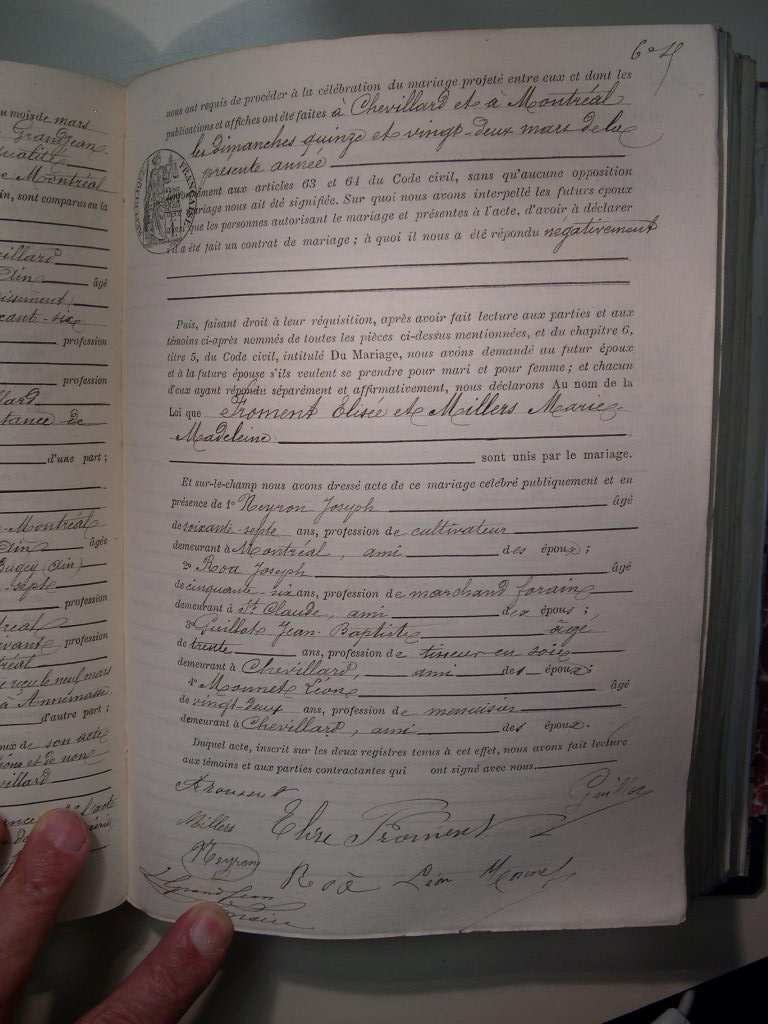 u mois de mars
Grandjean
qualité
e Montréal
in, sont comparus en la
villard
Ain
âgé
cant-six
profession
profession
llard
stance de
d'une part;
e Montréal
Ain
âgée
Bugey (Ain)
sept
profession
réal
vant,
profession
tréal
reçu le neuf mars
à Annemasse
d'autre part;
ux de son acte
et de non
villard
nous ont requis de procéder à la célébration du mariage projeté entre eux et dont les
publications et affiches ont été faites à Chevillard et à Montréal
les dimanches quinze et vingt-deux mars de la
présente année
FRANÇAISE
aux articles 63 et 64 du Code civil, sans qu'aucune opposition
mariage nous ait été signifiée. Sur quoi nous avons interpellé les futurs époux
ainsi que les personnes autorisant le mariage et présentes à l'acte, d'avoir à déclarer
s'il a été fait un contrat de mariage; à quoi il nous a été répondu négativement
Puis, faisant droit à leur réquisition, après avoir fait lecture aux parties et aux
témoins ci-après nommés de toutes les pièces ci-dessus mentionnées, et du chapitre 6,
titre 5, du Code civil, intitulé Du Mariage, nous avons demandé au futur époux
et à la future épouse s'ils veulent se prendre pour mari et pour femme; et chacun
d'eux ayant répondu séparément et affirmativement, nous déclarons Au nom de la
Loi que Froment Elisée et Millers Marie-
Madeleine
sont unis par le mariage.
Et sur-le-champ nous avons dressé acte de ce mariage célébré publiquement et en
présence de 1° Neyron Joseph âgé
de soixante-sept ans, profession de cultivateur
demeurant à Montréal, ami des époux;
2° Roa Joseph âgé
de cinquante-six ans, profession de marchand forain
demeurant à St Claude, ami des époux;
3° Guillot Jean-Baptiste âgé
de trente ans, profession de tisseur en soie
demeurant à Chevillard, ami des époux;
4° Monnet Léon âgé
de vingt-deux ans, profession de menuisier
demeurant à Chevillard, ami des époux.
Duquel acte, inscrit sur les deux registres tenus à cet effet, nous avons fait lecture
aux témoins et aux parties contractantes qui ont signé avec nous
Guillot
Millers Elisée Froment
Neyron Roa Léon Monnet
Grandjean
maire